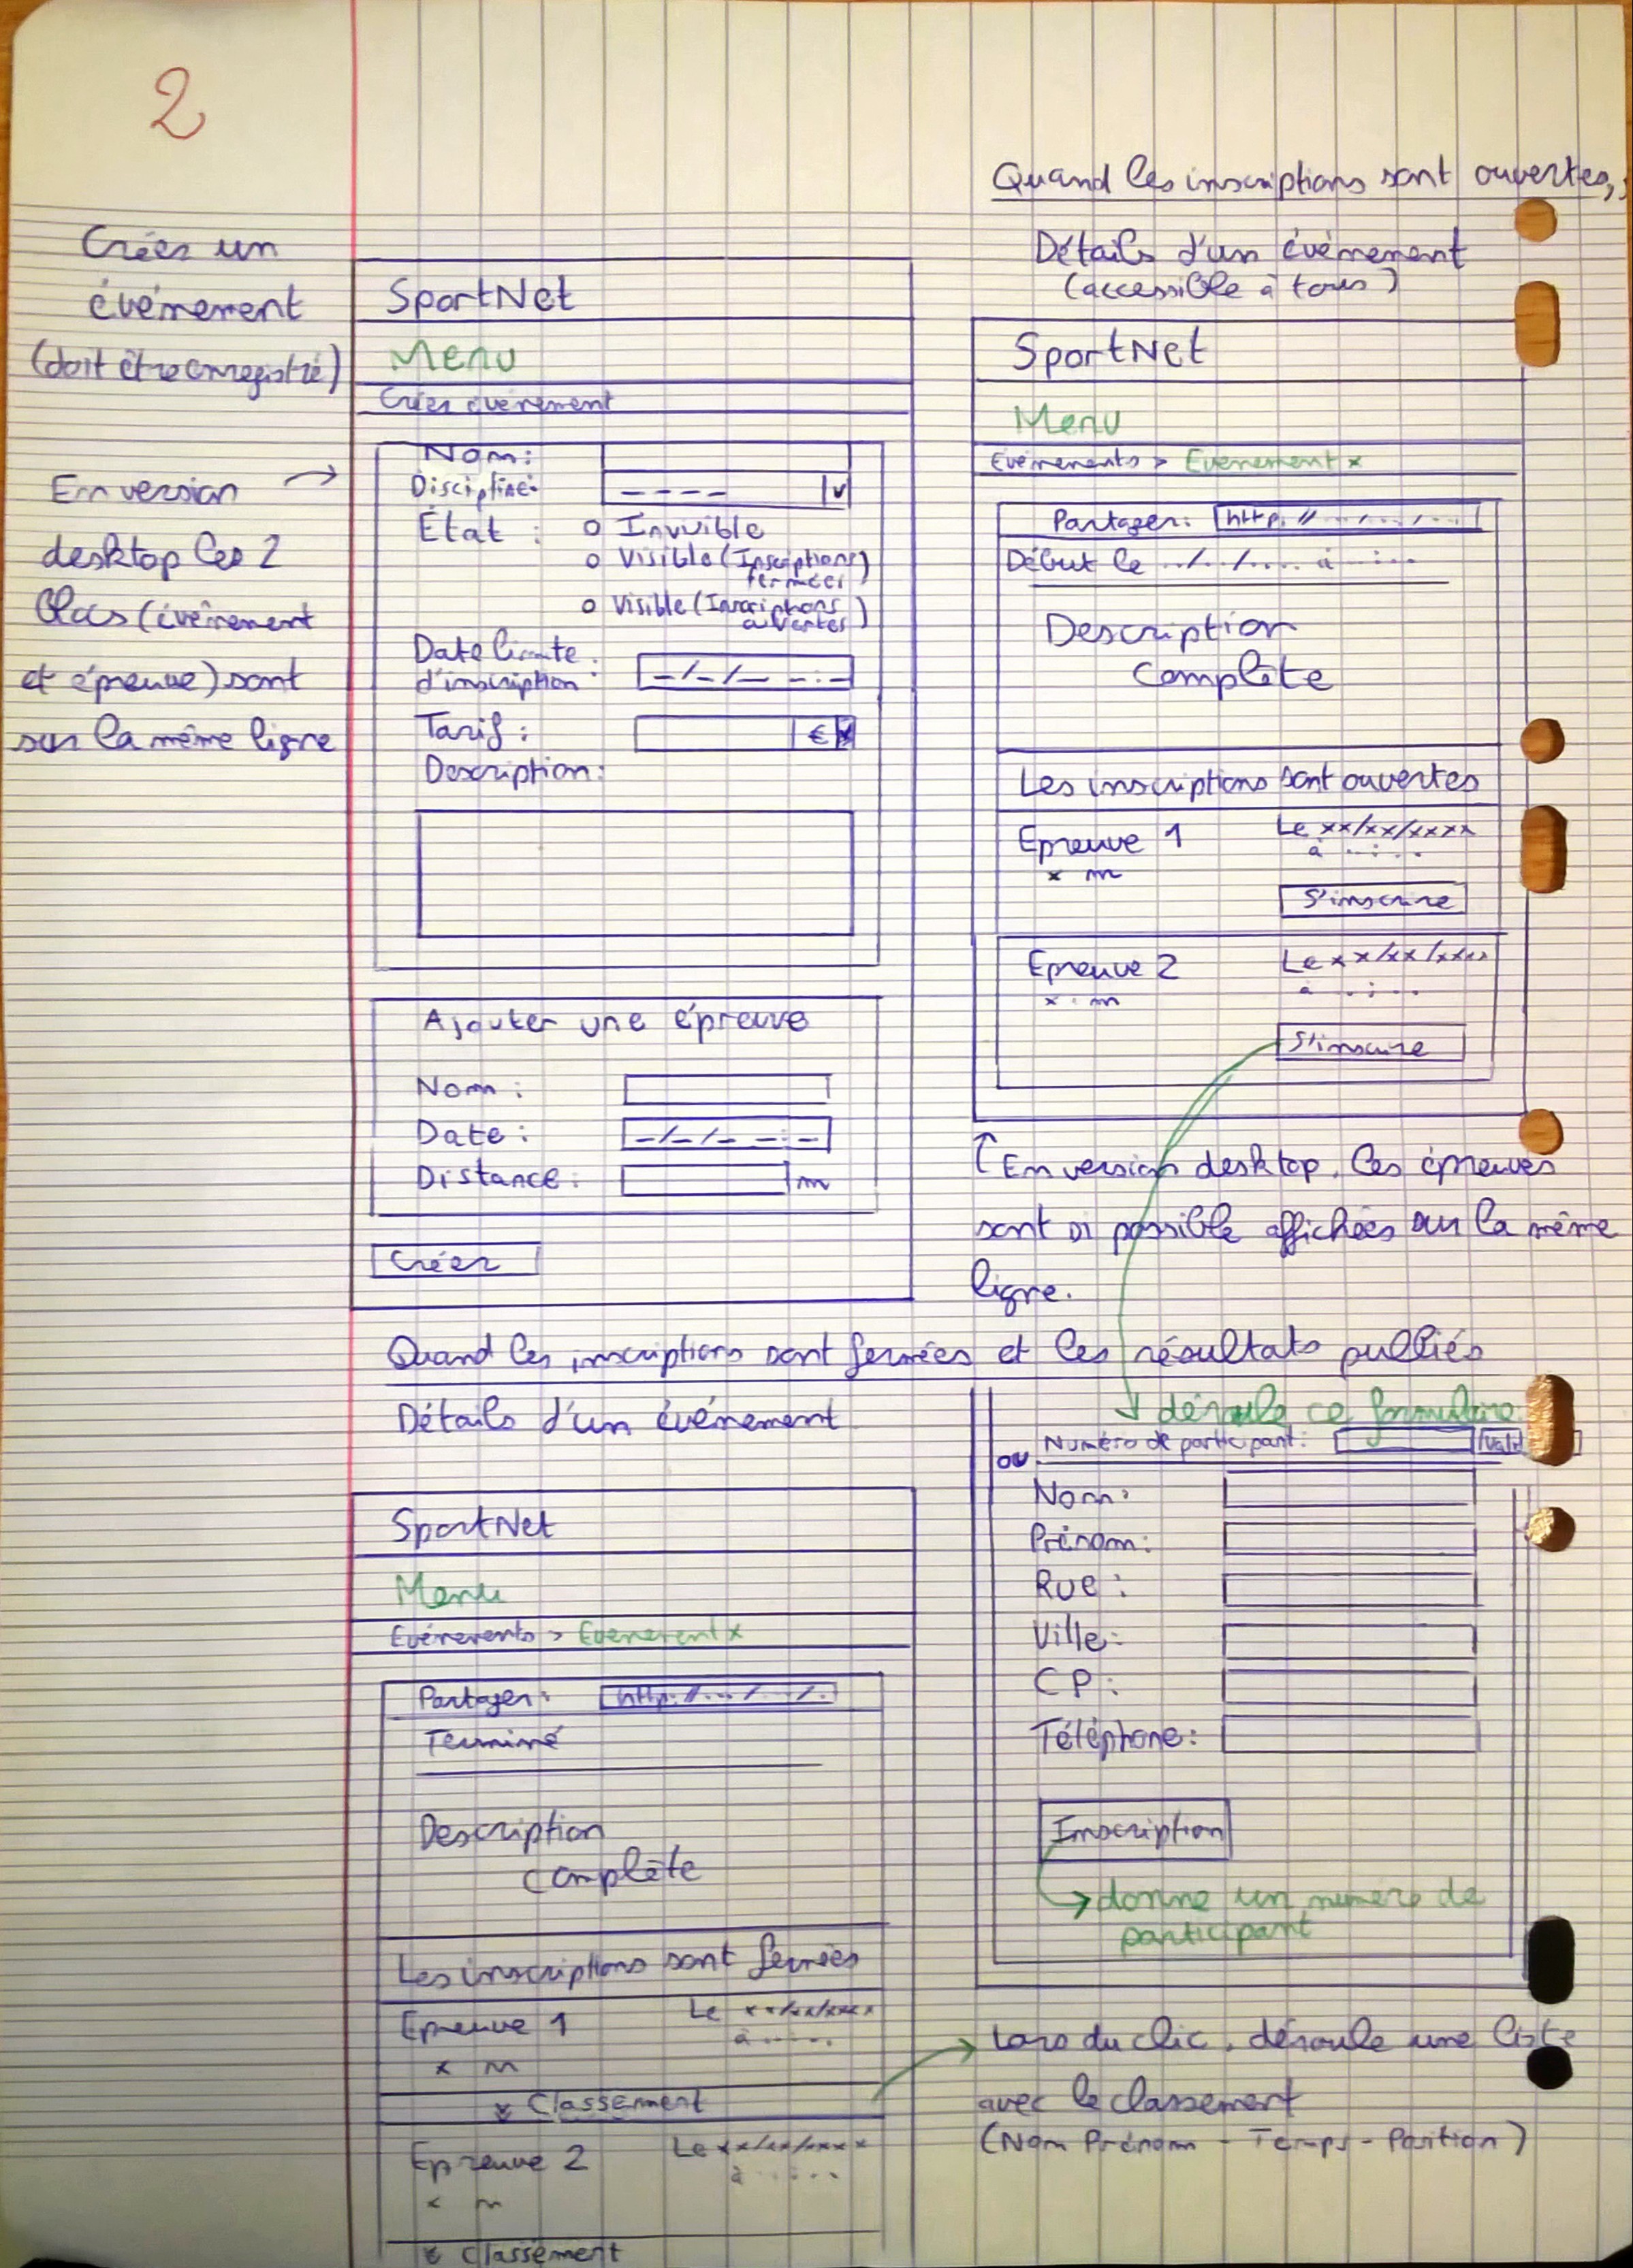 2
Créer un
événement
(doit être enregistré)
En version
desktop les 2
blocs (événement
et épreuve) sont
sur la même ligne
SportNet
Menu
Créer événement
Nom:
Discipline:
État :
o Invisible
o Visible (Inscriptions
fermées)
o Visible (Inscriptions
ouvertes)
Date limite
d'inscription :
_/_/__ _:_
Tarif :
€
Description:
Ajouter une épreuve
Nom :
Date :
_/_/_ _:_
Distance :
m
Créer
Quand les inscriptions sont ouvertes,
Détails d'un événement
(accessible à tous)
SportNet
Menu
Evénements > Evenement x
Partager: http://.../.../...
Début le ../../.... à ..:..
Description
Complète
Les inscriptions sont ouvertes
Epreuve 1 Le xx/xx/xxxx
x m à ..:..
S'inscrire
Epreuve 2 Le xx/xx/xxxx
x m à ..:..
S'inscrire
↑ En version desktop, les épreuves
sont si possible affichées sur la même
ligne.
Quand les inscriptions sont fermées et les résultats publiés
Détails d'un événement
SportNet
Menu
Evénements > Evenement x
Partager: http://.../.../.
Terminé
Description
complète
Les inscriptions sont fermées
Epreuve 1 Le xx/xx/xxxx
x m à ..:..
v Classement
Epreuve 2 Le xx/xx/xxxx
x m à ..:..
v Classement
↓ déroule ce formulaire
Numéro de participant: Valid
ou
Nom:
Prénom:
Rue :
Ville:
CP:
Téléphone:
Inscription
→ donne un numéro de
participant
Lors du clic, déroule une liste
avec le classement
(Nom Prénom - Temps - Position)